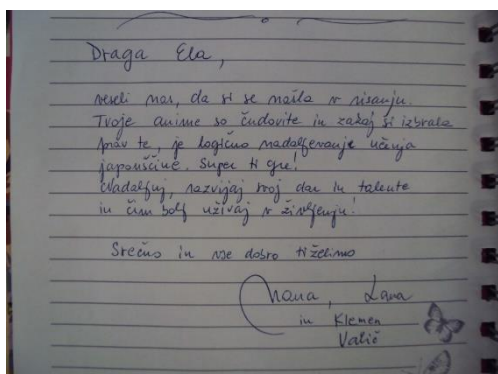 Draga Ela,
veseli nas, da si se našla v risanju.
Tvoje anime so čudovite in zakaj si izbrala
prav te, je logično nadaljevanje učenja
japonščine. Super ti gre!
Nadaljuj, razvijaj svoj dar in talente
in čim bolj uživaj v življenju!
Srečno in vse dobro ti želimo
Nana, Lana
in Klemen
Valič